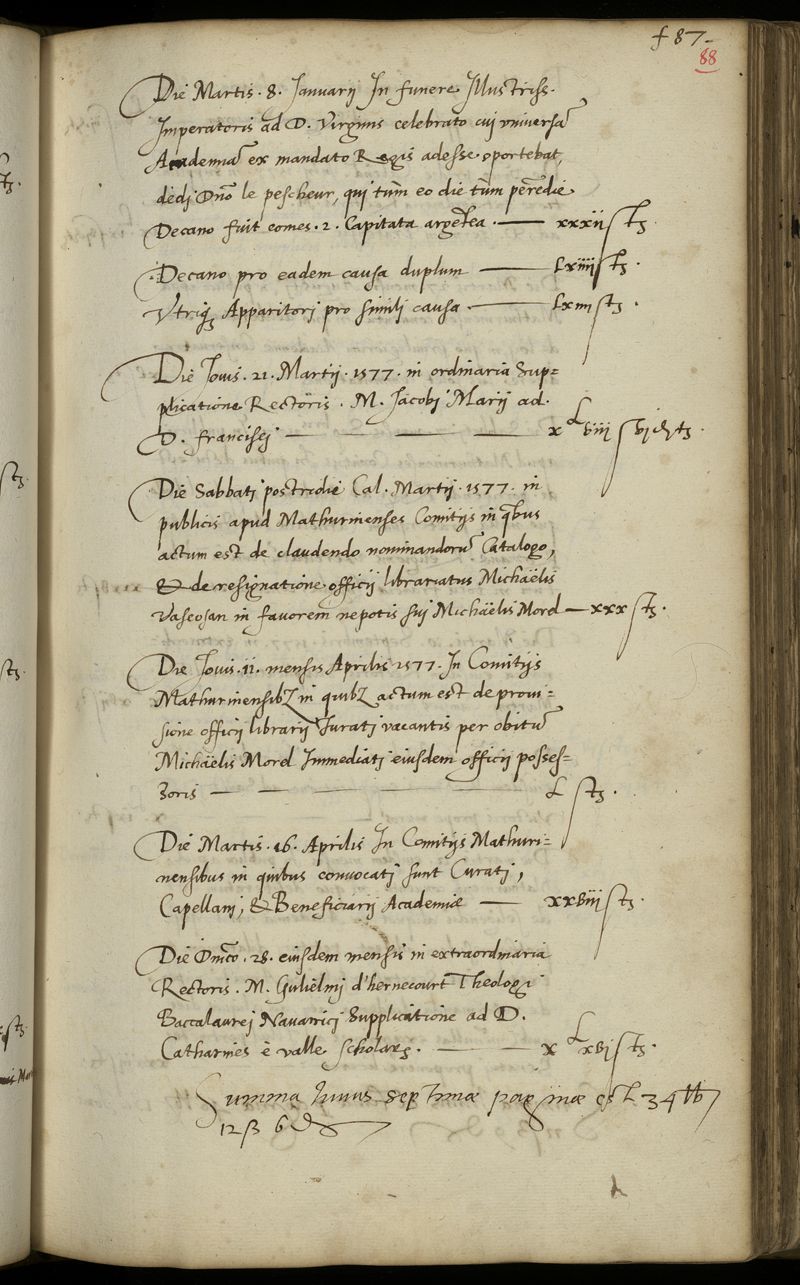 f 87-
88
Die Martis. 8. Januarij In funere Illustriss.
Imperatoris ad D. Virginis celebrato cui vniversã
Academiã ex mandato Regis adesse oportebat,
dedi Dño le pescheur, qui tùm eo die tùm perẽdie
Decano fuit comes. 2. Capitata argẽtea. — xxxij stz.
Decano pro eadem causa duplum — Lxiiij stz.
Vtriq3 Apparitorj pro similj causa — Lxiiij stz.
Die Jouis. 21. Martij. 1577. in ordinaria Sup=
plicatione Rectoris. M. Jacobj Marij ad.
D. francisej — — — x L viij s vj d tz.
Die Sabbatj postridie Cal. Martij. 1577. in
publicis apud Mathurinenses Comitijs in qbus
actum est de claudendo nominandorũ Catalogo,
& de resignatione officij librariatus Michaëlis
Vascosan in favorem nepotis sui Michaëlis Mord — xxx stz.
Die Jouis. 11. mensis Aprilis 1577. In Comitijs
Mathurinensib3 in quib3 actum est de proui=
sione officij librarij Juratj vacantis per obitũ
Michaëlis Mord Immediatj eiusdem officij posses=
soris — — — L stz.
Die Martis. 16. Aprilis In Comitijs Mathuri=
nensibus in quibus convocatj sunt Curatj,
Capellanj, & Beneficiarij Academiæ — xxviij stz.
Die Dmco. 28. eiusdem mensis in extraordinaria
Rectoris. M. Gulielmj d'hernecourt Theologi
Baccalaurej Navarricj Supplicatione ad D.
Catharines è valle scholarz. — x L xvj stz.
Summa huius septimæ paginæ est 34 lb
12 ß 6 d